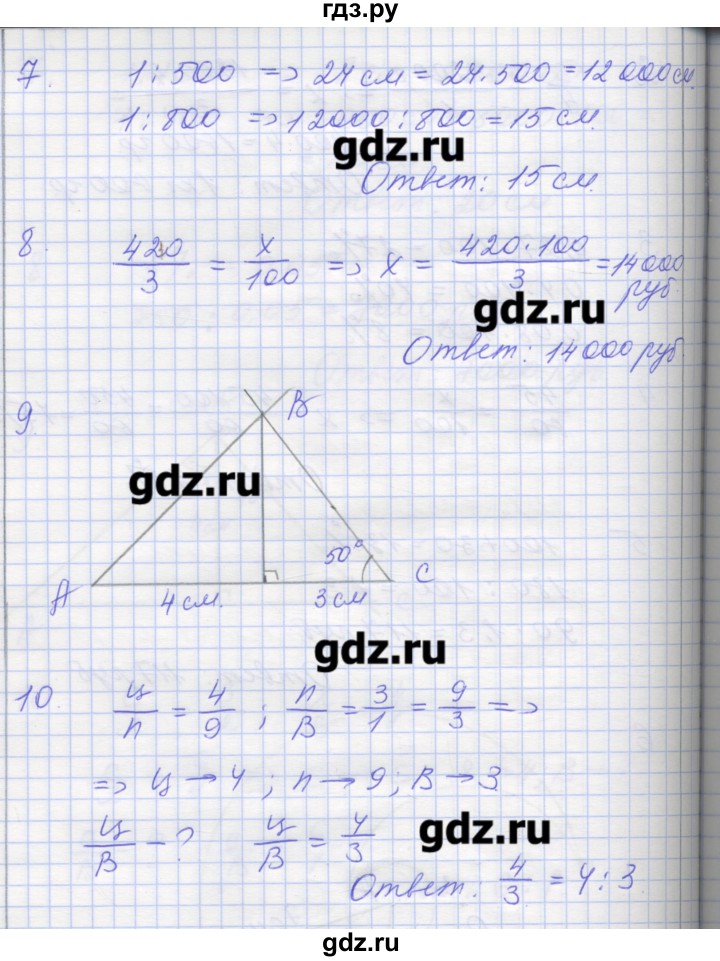 гдз.ру
7. 1:500 => 24 см = 24·500 = 12 000 см.
1:800 => 12000:800 = 15 см.
gdz.ru
Ответ: 15 см.
8. 420/3 = x/100 => x = 420·100/3 = 14000 руб.
gdz.ru
Ответ: 14000 руб.
9
B
gdz.ru
50°
A
C
4 см.
3 см
gdz.ru
10. ц/п = 4/9 ; п/в = 3/1 = 9/3 =>
=> ц → 4 ; п → 9 ; в → 3
gdz.ru
ц/в - ? ц/в = 4/3
Ответ: 4/3 = 4:3.
gdz.ru